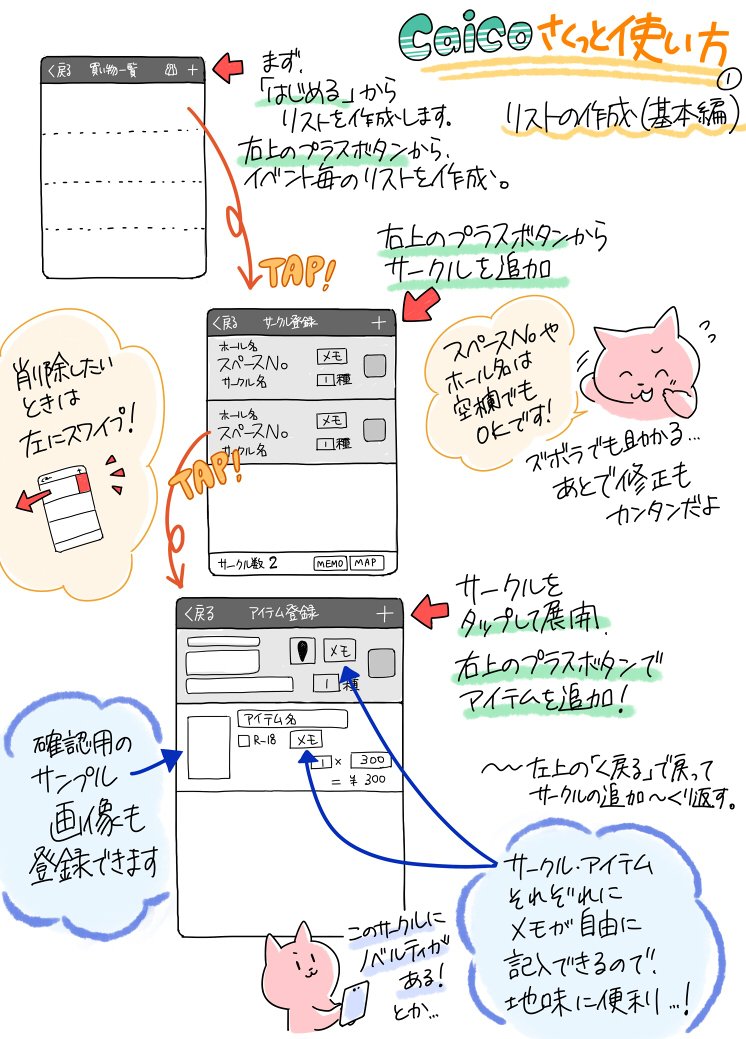 Caico さくっと使い方
①
リストの作成(基本編)
まず、
「はじめる」から
リストを作成します。
右上のプラスボタンから、
イベント毎のリストを作成。
く戻る 買い物一覧 +
TAP!
右上のプラスボタンから
サークルを追加
く戻る サークル登録 +
ホール名
スペースNo
サークル名
メモ
1種
ホール名
スペースNo
サークル名
メモ
1種
サークル数 2 MEMO MAP
スペースNoや
ホール名は
空欄でも
OKです!
ズボラでも助かる…
あとで修正も
カンタンだよ
削除したい
ときは
左にスワイプ!
TAP!
く戻る アイテム登録 +
メモ
1種
アイテム名
R-18 メモ
1 × 300
= ¥300
サークルを
タップして展開、
右上のプラスボタンで
アイテムを追加!
〜〜左上の「く戻る」で戻って
サークルの追加〜くり返す。
確認用の
サンプル
画像も
登録できます
サークル・アイテム
それぞれに
メモが自由に
記入できるので、
地味に便利…!
このサークルに
ノベルティが
ある!
とか…